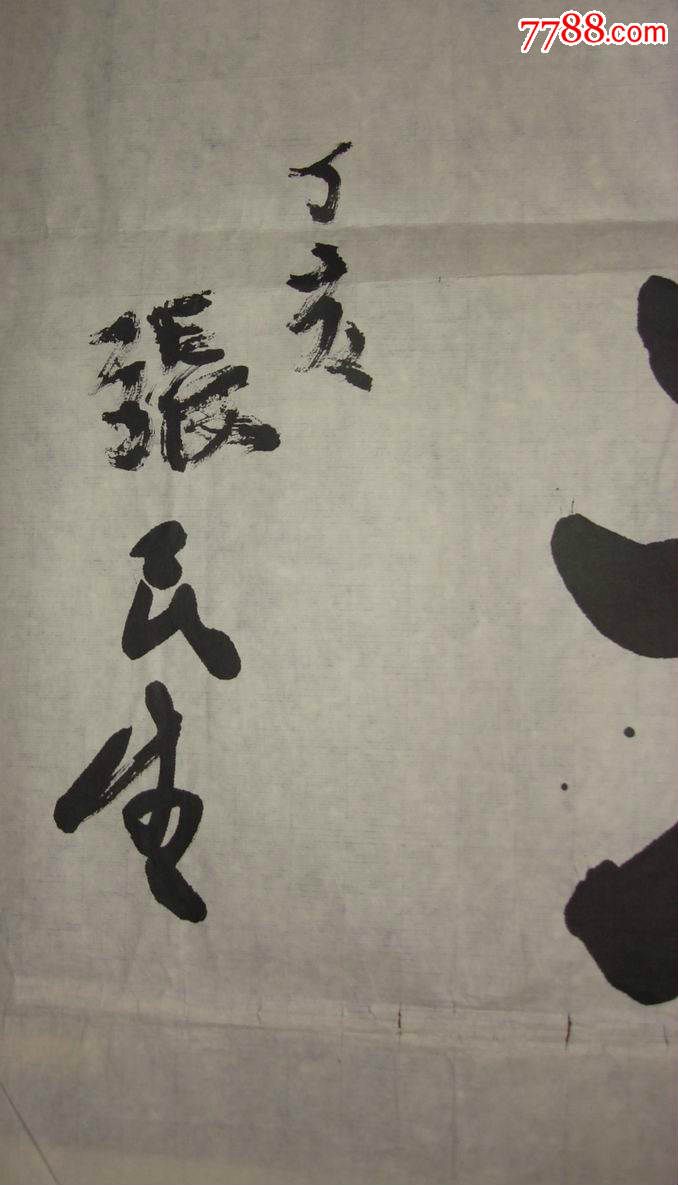 7788.com
丁亥
張民生